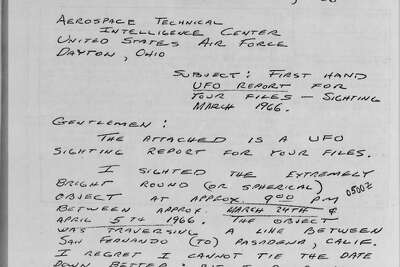 AEROSPACE TECHNICAL
INTELLIGENCE CENTER
UNITED STATES AIR FORCE
DAYTON, OHIO
SUBJECT: FIRST HAND
UFO REPORT FOR
YOUR FILES - SIGHTING
MARCH 1966.
GENTLEMEN:
THE ATTACHED IS A UFO
SIGHTING REPORT FOR YOUR FILES.
I SIGHTED THE EXTREMELY
BRIGHT ROUND (OR SPHERICAL)
OBJECT AT APPROX. 9:00 PM
0500Z
BETWEEN APPROX. MARCH 24TH &
APRIL 5TH 1966. THE OBJECT
WAS TRAVERSING A LINE BETWEEN
SAN FERNANDO (TO) PASADENA, CALIF.
I REGRET I CANNOT TIE THE DATE
DOWN BETTER;